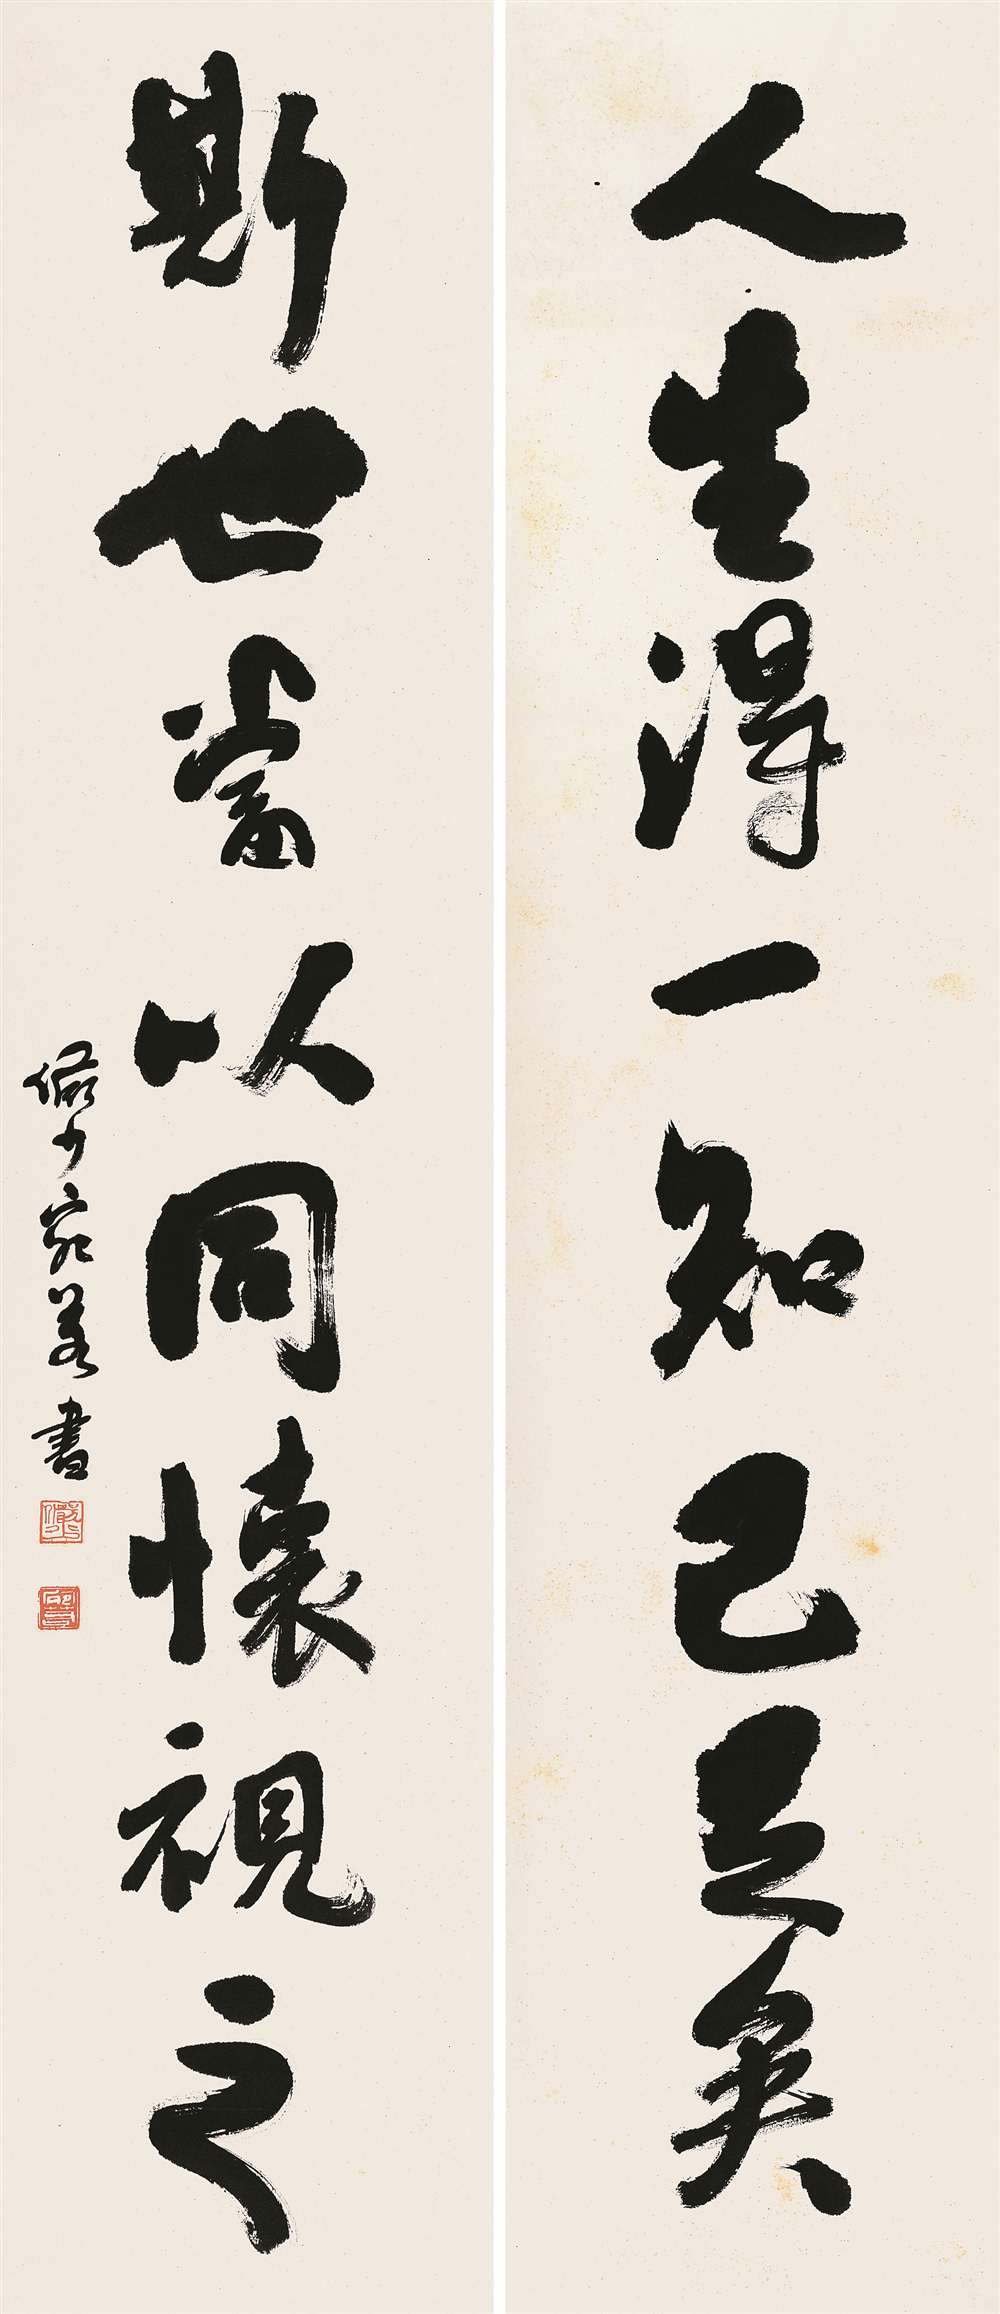 人生得一知己足矣
斯世當以同懷視之
儼少宛若書